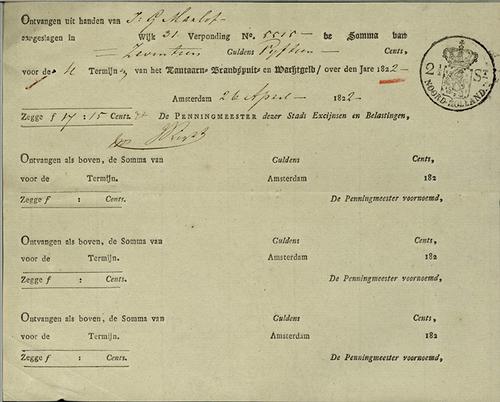 Ontvangen uit handen van J. G. Marlof
aangeslagen in Wijk 31 Verponding No. 5515 de Somma van
= Zeventien Guldens Vyftien Cents,
voor de 4 Termijn van het Lantaarn- Brandspuit- en Wachtgeld / over den Jare 1822
2½ St.
NOORD-HOLLAND.
Amsterdam 26 April 1822
Zegge ƒ 17 : 15 Cents. De PENNINGMEESTER dezer Stads Excijnsen en Belastingen,
Ontvangen als boven, de Somma van Guldens Cents,
voor de Termijn. Amsterdam 182
Zegge ƒ : Cents. De Penningmeester voornoemd,
Ontvangen als boven, de Somma van Guldens Cents,
voor de Termijn. Amsterdam 182
Zegge ƒ : Cents. De Penningmeester voornoemd,
Ontvangen als boven, de Somma van Guldens Cents,
voor de Termijn. Amsterdam 182
Zegge ƒ : Cents. De Penningmeester voornoemd,